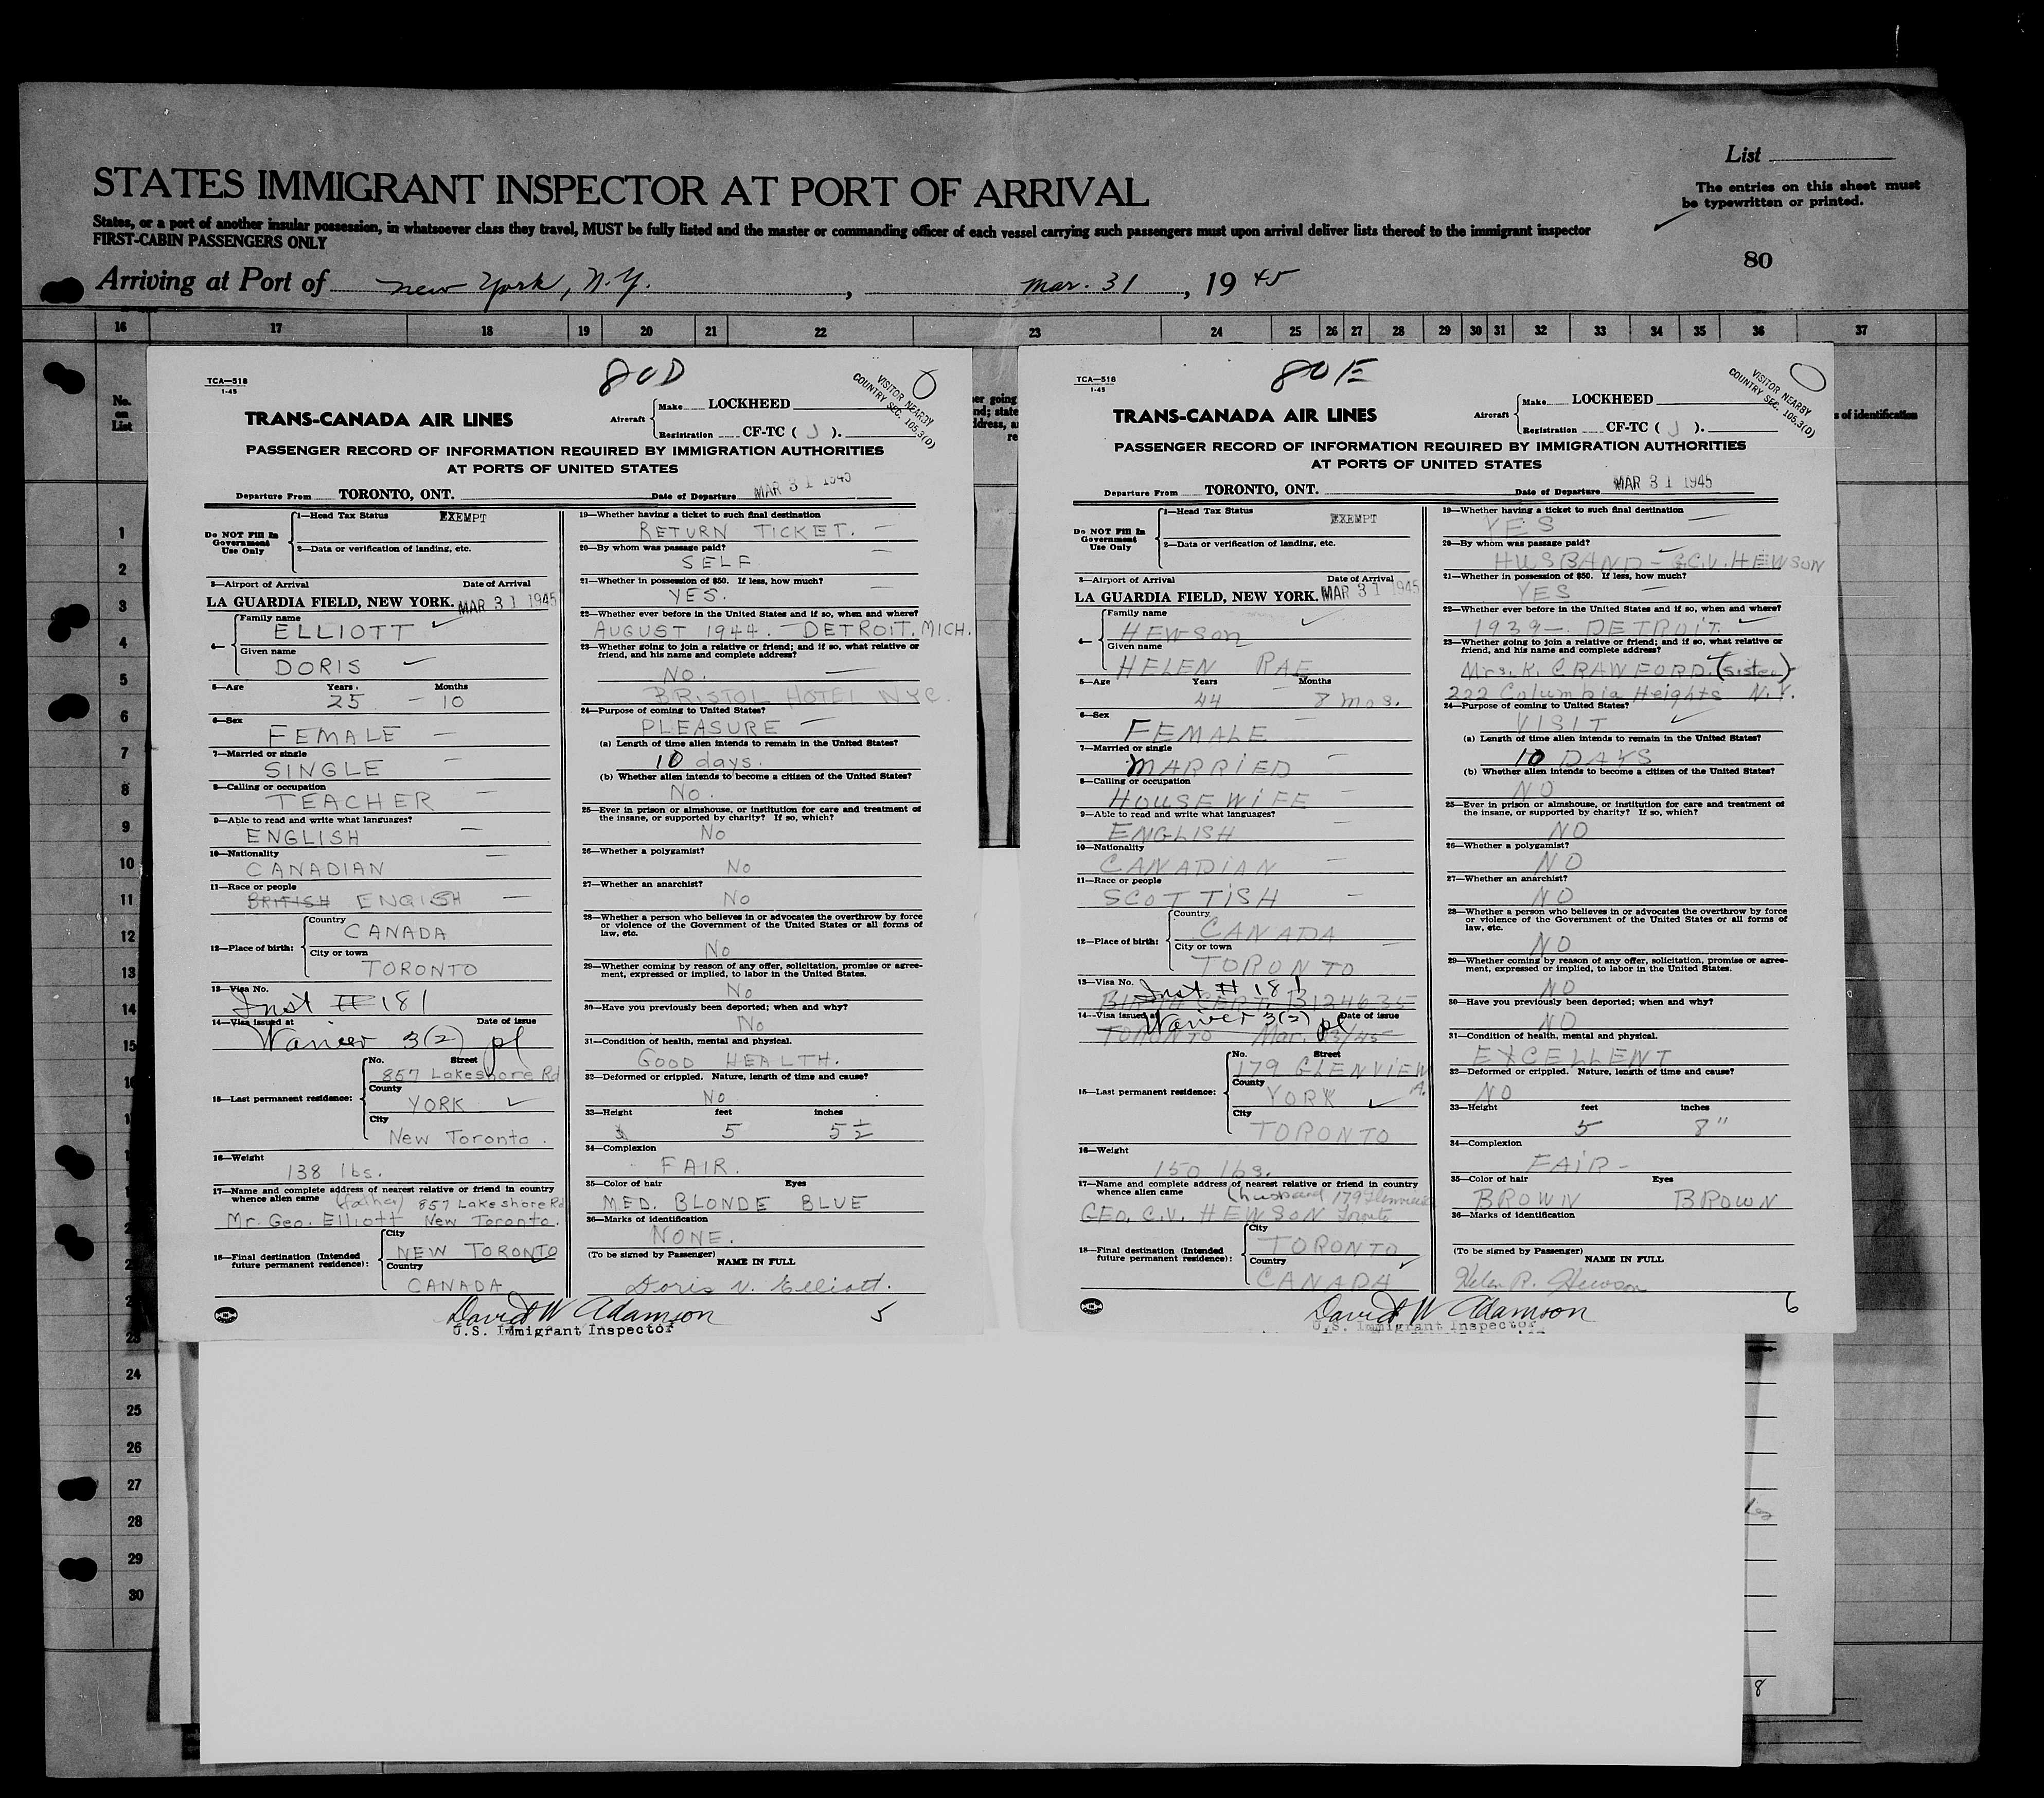 List
STATES IMMIGRANT INSPECTOR AT PORT OF ARRIVAL
The entries on this sheet must
be typewritten or printed.
States, or a port of another insular possession, in whatsoever class they travel, MUST be fully listed and the master or commanding officer of each vessel carrying such passengers must upon arrival deliver lists thereof to the immigrant inspector
FIRST-CABIN PASSENGERS ONLY
80
Arriving at Port of New York, N.Y., Mar. 31, 1945
16 17 18 19 20 21 22 23 24 25 26 27 28 29 30 31 32 33 34 35 36 37
No.
on
List
s of identification
1
2
3
4
5
6
7
8
9
10
11
12
13
14
15
24
25
26
27
28
29
30
8
80D
TCA—518
1-45
VISITOR NEARBY
COUNTRY SEC. 105.3(D)
TRANS-CANADA AIR LINES
Aircraft
Make LOCKHEED
Registration CF-TC ( J ).
PASSENGER RECORD OF INFORMATION REQUIRED BY IMMIGRATION AUTHORITIES
AT PORTS OF UNITED STATES
Departure From TORONTO, ONT. Date of Departure MAR 31 1945
Do NOT Fill In
Government
Use Only
1—Head Tax Status EXEMPT
2—Data or verification of landing, etc.
3—Airport of Arrival Date of Arrival
LA GUARDIA FIELD, NEW YORK. MAR 31 1945
4— Family name
ELLIOTT
Given name
DORIS
5—Age Years. Months
25 — 10
6—Sex
FEMALE
7—Married or single
SINGLE
8—Calling or occupation
TEACHER
9—Able to read and write what languages?
ENGLISH
10—Nationality
CANADIAN
11—Race or people
BRITISH ENGISH
12—Place of birth:
Country
CANADA
City or town
TORONTO
13—Visa No.
Inst # 181
14—Visa issued at Date of issue
Waiver 3(2) pl
15—Last permanent residence:
No. Street
857 Lakeshore Rd
County
YORK
City
New Toronto.
16—Weight
138 lbs.
17—Name and complete address of nearest relative or friend in country
whence alien came (father) 857 Lake shore Rd
Mr. Geo. Elliott New Toronto.
18—Final destination (Intended
future permanent residence):
City
NEW TORONTO
Country
CANADA
19—Whether having a ticket to such final destination
RETURN TICKET.
20—By whom was passage paid?
SELF
21—Whether in possession of $50. If less, how much?
YES.
22—Whether ever before in the United States and if so, when and where?
AUGUST 1944. — DETROIT, MICH.
23—Whether going to join a relative or friend; and if so, what relative or
friend, and his name and complete address?
NO.
BRISTOL HOTEL NYC.
24—Purpose of coming to United States?
PLEASURE
(a) Length of time alien intends to remain in the United States?
10 days.
(b) Whether alien intends to become a citizen of the United States?
NO.
25—Ever in prison or almshouse, or institution for care and treatment of
the insane, or supported by charity? If so, which?
NO
26—Whether a polygamist?
NO
27—Whether an anarchist?
NO
28—Whether a person who believes in or advocates the overthrow by force
or violence of the Government of the United States or all forms of
law, etc.
NO
29—Whether coming by reason of any offer, solicitation, promise or agree-
ment, expressed or implied, to labor in the United States.
NO
30—Have you previously been deported; when and why?
NO
31—Condition of health, mental and physical.
GOOD HEALTH.
32—Deformed or crippled. Nature, length of time and cause?
NO
33—Height feet inches
5 5½
34—Complexion
FAIR.
35—Color of hair Eyes
MED. BLONDE BLUE
36—Marks of identification
NONE.
(To be signed by Passenger)
NAME IN FULL
Doris V. Elliott.
David W Adamson 5
U.S. Immigrant Inspector
80E
TCA—518
1-45
VISITOR NEARBY
COUNTRY SEC. 105.3(D)
TRANS-CANADA AIR LINES
Aircraft
Make LOCKHEED
Registration CF-TC ( J ).
PASSENGER RECORD OF INFORMATION REQUIRED BY IMMIGRATION AUTHORITIES
AT PORTS OF UNITED STATES
Departure From TORONTO, ONT. Date of Departure MAR 31 1945
Do NOT Fill In
Government
Use Only
1—Head Tax Status EXEMPT
2—Data or verification of landing, etc.
3—Airport of Arrival Date of Arrival
LA GUARDIA FIELD, NEW YORK. MAR 31 1945
4— Family name
HEWSON
Given name
HELEN RAE
5—Age Years Months
44 8 mos.
6—Sex
FEMALE
7—Married or single
MARRIED
8—Calling or occupation
HOUSEWIFE
9—Able to read and write what languages?
ENGLISH
10—Nationality
CANADIAN
11—Race or people
SCOTTISH
12—Place of birth:
Country
CANADA
City or town
TORONTO
13—Visa No. Inst # 181
BIRTH CERT. B124635
14—Visa issued at Date of issue
Waiver 3(2) pl
TORONTO Mar. 13/45
15—Last permanent residence:
No. Street
179 GLENVIEW A.
County
YORK
City
TORONTO
16—Weight
150 lbs.
17—Name and complete address of nearest relative or friend in country
whence alien came (husband 179 Glenview
GEO. C.V. HEWSON Toronto
18—Final destination (Intended
future permanent residence):
City
TORONTO
Country
CANADA
19—Whether having a ticket to such final destination
YES
20—By whom was passage paid?
HUSBAND — G.C.V. HEWSON
21—Whether in possession of $50. If less, how much?
YES
22—Whether ever before in the United States and if so, when and where?
1939 — DETROIT.
23—Whether going to join a relative or friend; and if so, what relative or
friend, and his name and complete address?
Mrs. K. CRAWFORD. (sister)
222 Columbia Heights N.Y.
24—Purpose of coming to United States?
VISIT
(a) Length of time alien intends to remain in the United States?
10 DAYS
(b) Whether alien intends to become a citizen of the United States?
NO
25—Ever in prison or almshouse, or institution for care and treatment of
the insane, or supported by charity? If so, which?
NO
26—Whether a polygamist?
NO
27—Whether an anarchist?
NO
28—Whether a person who believes in or advocates the overthrow by force
or violence of the Government of the United States or all forms of
law, etc.
NO
29—Whether coming by reason of any offer, solicitation, promise or agree-
ment, expressed or implied, to labor in the United States.
NO
30—Have you previously been deported; when and why?
NO
31—Condition of health, mental and physical.
EXCELLENT
32—Deformed or crippled. Nature, length of time and cause?
NO
33—Height feet inches
5 8"
34—Complexion
FAIR —
35—Color of hair Eyes
BROWN BROWN
36—Marks of identification
(To be signed by Passenger)
NAME IN FULL
Helen R. Hewson
David W Adamson 6
U.S. Immigrant Inspector